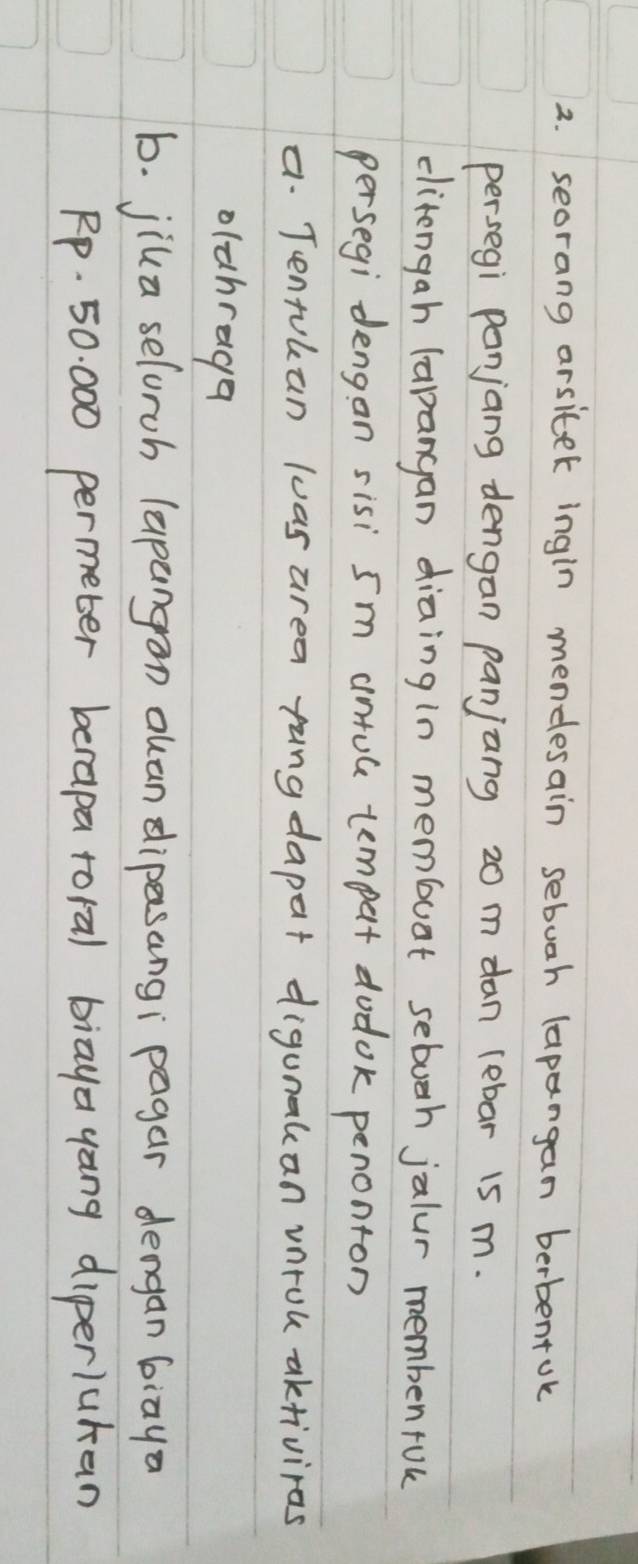 2. seorang arsitek ingin mendesain sebuah lapangan berbentuk
persegi panjang dengan panjang 20 m dan lebar 15 m.
ditengah lapangan diaingin membuat sebuah jalur membentuk
persegi dengan sisi 5 m untuk tempat duduk penonton
a. Tentukan luas area yang dapat digunakan untuk aktivitas
olahraga
b. jika seluruh lapangan akan dipasangi pagar dengan biaya
Rp. 50.000 permeter berapa total biaya yang diperlukan